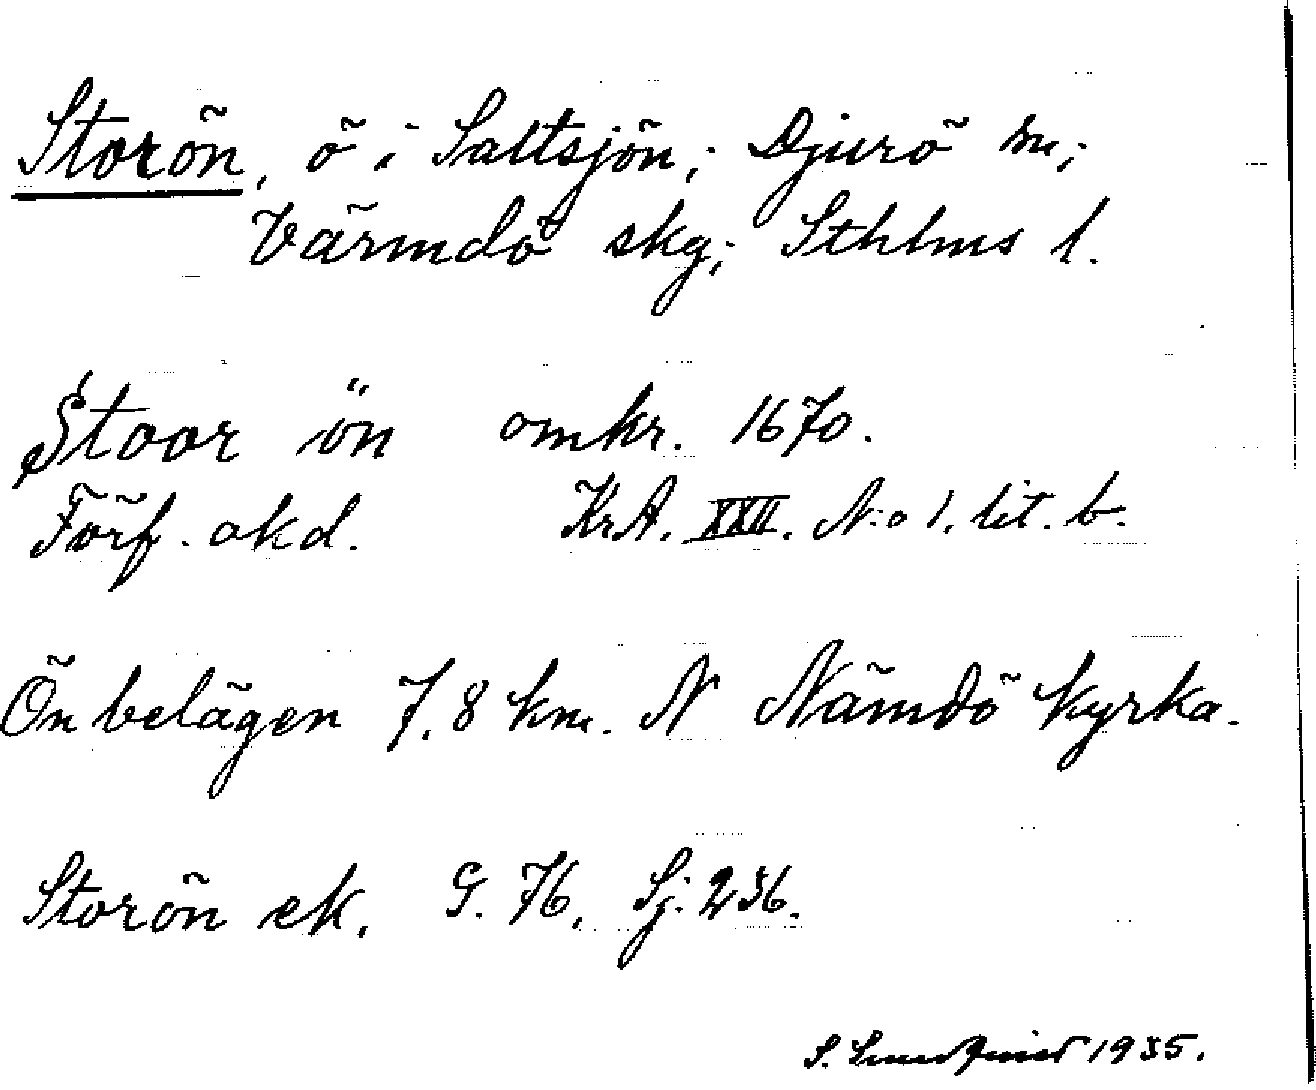 Storön, ö i Saltsjön; Djurö sn;
Värmdö skg; Sthlms l.
Stoor ön omkr. 1670.
Förf. okd. KrA. XXII. N:o 1. lit. b.
Ön belägen 7,8 km. N Nämdö kyrka.
Storön ek. G. 76. Sj. 236.
S. 1935.